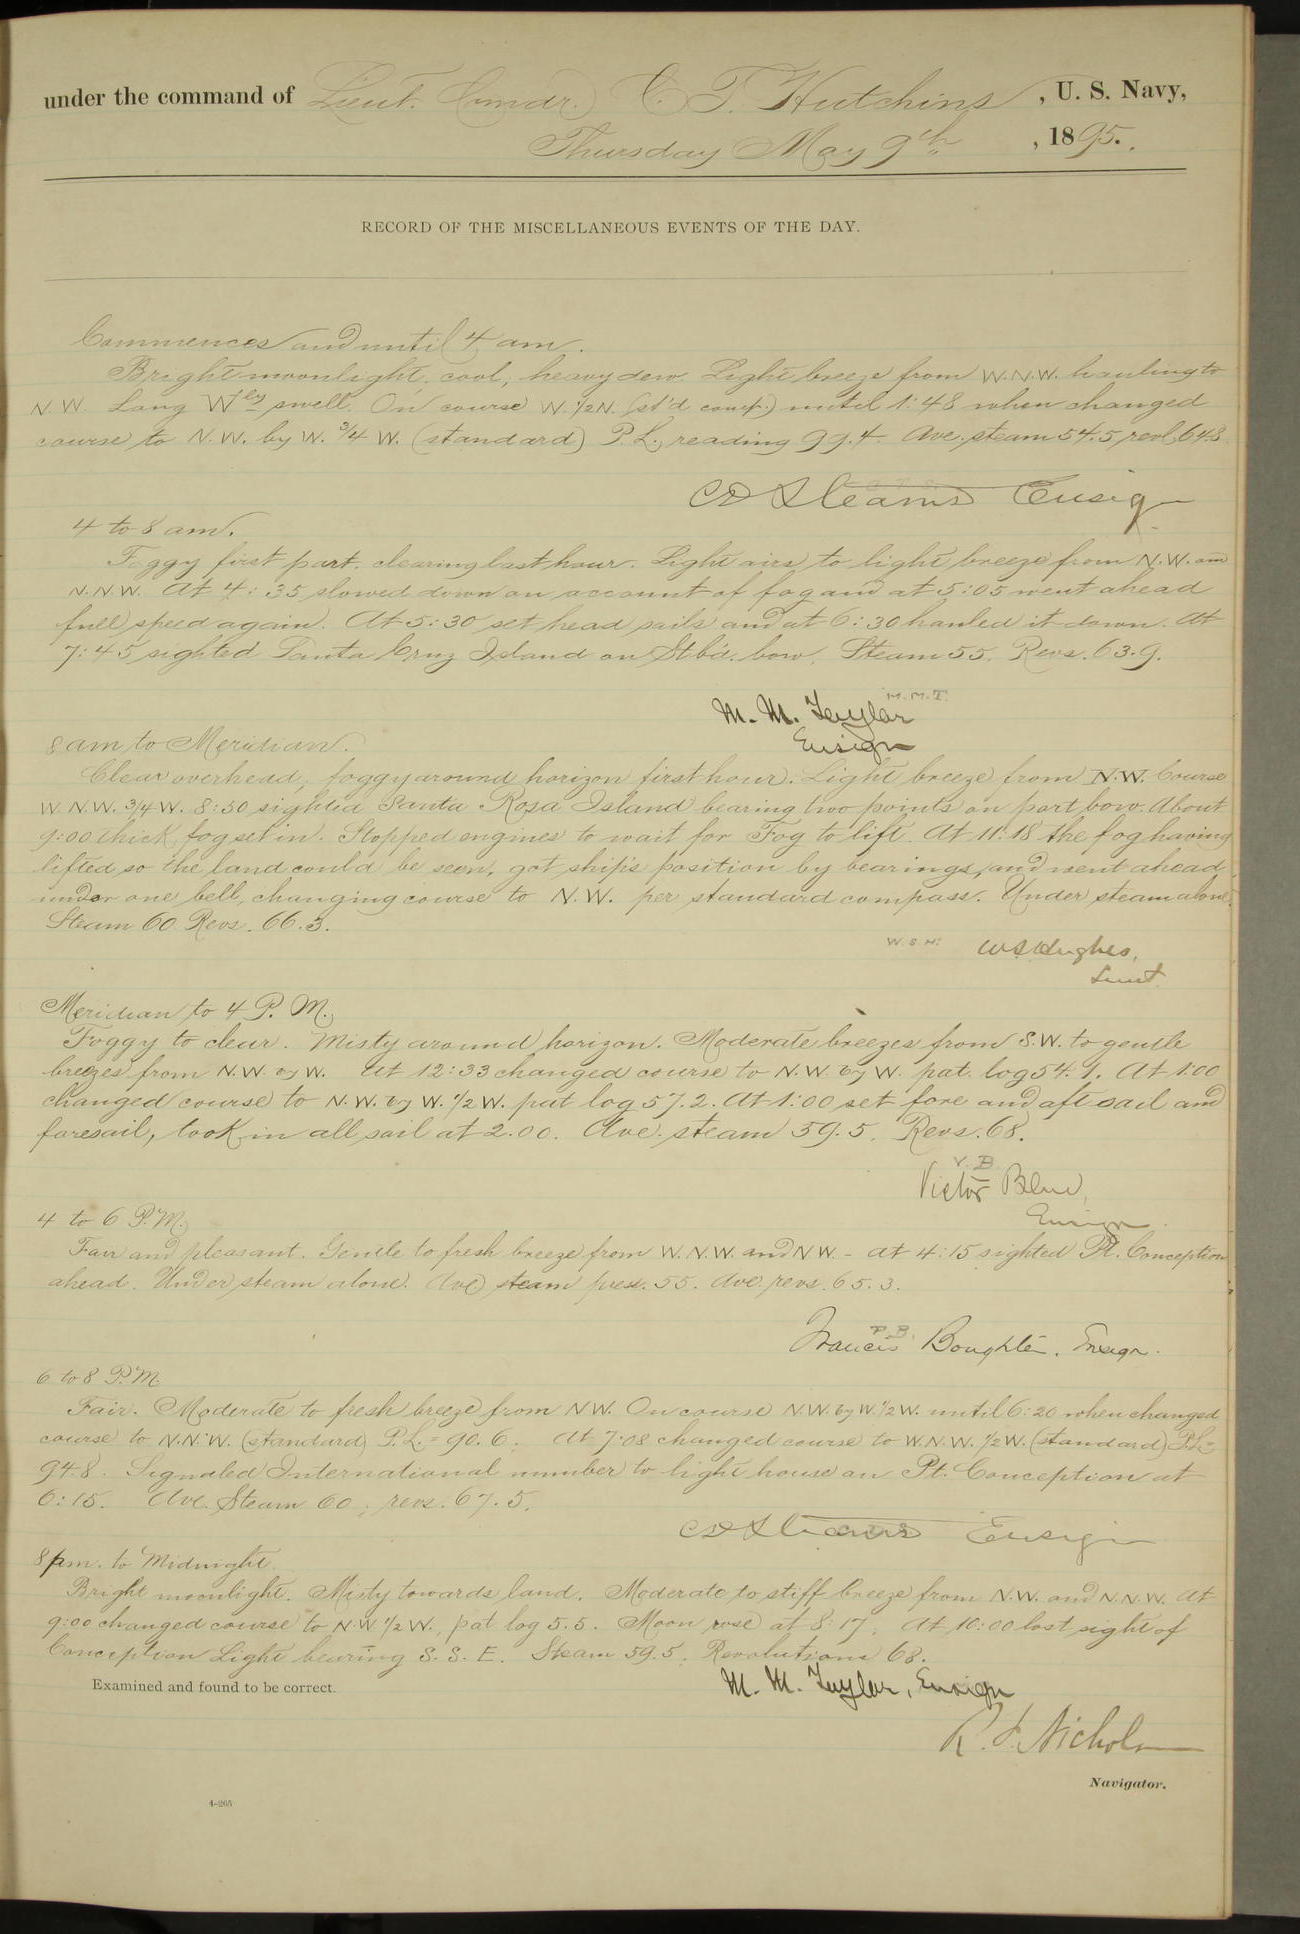 under the command of Lieut. Comdr. C. T. Hutchins, U. S. Navy,
Thursday May 9th, 1895.
RECORD OF THE MISCELLANEOUS EVENTS OF THE DAY.
Commences and until 4 am.
Bright moonlight, cool, heavy dew. Light breeze from W.N.W. hauling to
N.W. Long Wly swell. On course W. 1/2 N. (st'd comp.) until 1:48 when changed
course to N.W. by W. 3/4 W. (standard) P.L. reading 99.4. Ave. steam 54.5, revl. 64.8
C D Stearns Ensign
4 to 8 am.
Foggy first part, clearing last hour. Light airs to light breeze from N.W. and
N.N.W. At 4:35 slowed down on account of fog and at 5:05 went ahead
full speed again. At 5:30 set head sails and at 6:30 hauled it down. At
7:45 sighted Santa Cruz Island on Stb'd. bow. Steam 55. Revs. 63.9.
M.M.T.
M. M. Taylor
Ensign
8 am to Meridian.
Clear overhead, foggy around horizon first hour. Light breeze from N.W. Course
W.N.W. 3/4 W. 8:50 sighted Santa Rosa Island bearing two points on port bow. About
9:00 thick fog set in. Stopped engines to wait for Fog to lift. At 11:18 the fog having
lifted so the land could be seen, got ship's position by bearings, and went ahead
under one bell, changing course to N.W. per standard compass. Under steam alone.
Steam 60 Revs. 66.3.
W.S.H. W S Hughes,
Lieut.
Meridian to 4 P.M.
Foggy to clear. Misty around horizon. Moderate breezes from S.W. to gentle
breezes from N.W. by W. At 12:33 changed course to N.W. by W. pat. log 54.1. At 1:00
changed course to N.W. by W. 1/2 W. pat log 57.2. At 1:00 set fore and aft sail and
foresail, took in all sail at 2.00. Ave. steam 59.5. Revs. 68.
V.B.
Victor Blue,
Ensign
4 to 6 P.M.
Fair and pleasant. Gentle to fresh breeze from W.N.W. and N.W. - at 4:15 sighted Pt. Conception
ahead. Under steam alone. Ave steam press. 55. Ave. revs. 65.3.
F.B.
Francis Boughter. Ensign.
6 to 8 P.M.
Fair. Moderate to fresh breeze from NW. On course N.W. by W. 1/2 W. until 6:20 when changed
course to N.N.W. (standard) P.L. = 90.6. At 7:08 changed course to W.N.W. 1/2 W. (standard) P.L. =
94.8. Signaled International number to light house on Pt. Conception at
6:15. Ave. Steam 60; revs. 67.5.
C D Stearns Ensign
8 pm. to Midnight.
Bright moonlight. Misty towards land. Moderate to stiff breeze from N.W. and N.N.W. At
9:00 changed course to N.W. 1/2 W., pat log 5.5. Moon rose at 8:17. At 10:00 lost sight of
Conception Light bearing S.S.E. Steam 59.5. Revolutions 68.
Examined and found to be correct.
M. M. Taylor, Ensign
Nichols
Navigator.
4-265